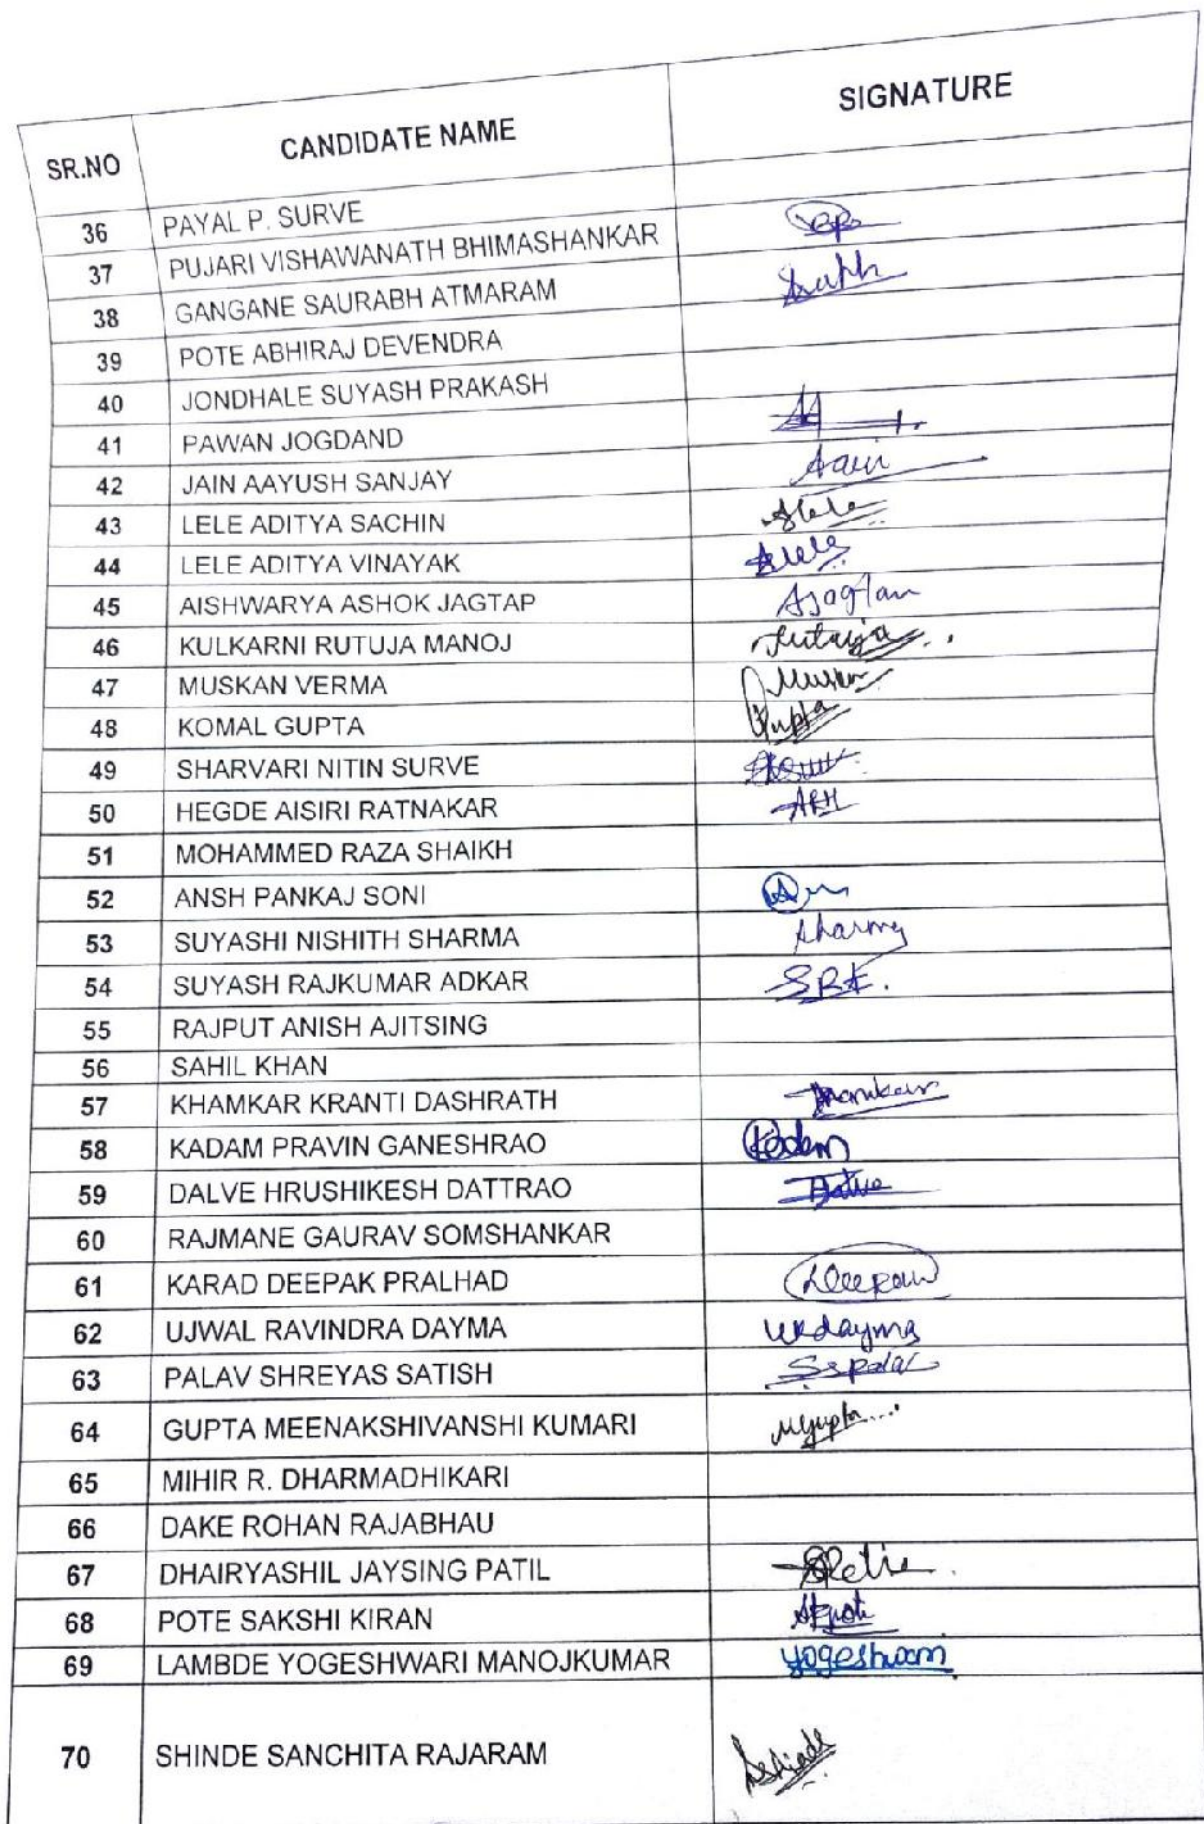 SR.NO CANDIDATE NAME SIGNATURE
36 PAYAL P. SURVE
37 PUJARI VISHAWANATH BHIMASHANKAR
38 GANGANE SAURABH ATMARAM
39 POTE ABHIRAJ DEVENDRA
40 JONDHALE SUYASH PRAKASH
41 PAWAN JOGDAND
42 JAIN AAYUSH SANJAY
43 LELE ADITYA SACHIN
44 LELE ADITYA VINAYAK
45 AISHWARYA ASHOK JAGTAP
46 KULKARNI RUTUJA MANOJ
47 MUSKAN VERMA
48 KOMAL GUPTA Gupta
49 SHARVARI NITIN SURVE
50 HEGDE AISIRI RATNAKAR ARH
51 MOHAMMED RAZA SHAIKH
52 ANSH PANKAJ SONI
53 SUYASHI NISHITH SHARMA sharma
54 SUYASH RAJKUMAR ADKAR
55 RAJPUT ANISH AJITSING
56 SAHIL KHAN
57 KHAMKAR KRANTI DASHRATH
58 KADAM PRAVIN GANESHRAO Kadam
59 DALVE HRUSHIKESH DATTRAO
60 RAJMANE GAURAV SOMSHANKAR
61 KARAD DEEPAK PRALHAD
62 UJWAL RAVINDRA DAYMA urdayma
63 PALAV SHREYAS SATISH
64 GUPTA MEENAKSHIVANSHI KUMARI mgupta....
65 MIHIR R. DHARMADHIKARI
66 DAKE ROHAN RAJABHAU
67 DHAIRYASHIL JAYSING PATIL
68 POTE SAKSHI KIRAN skpote
69 LAMBDE YOGESHWARI MANOJKUMAR
70 SHINDE SANCHITA RAJARAM